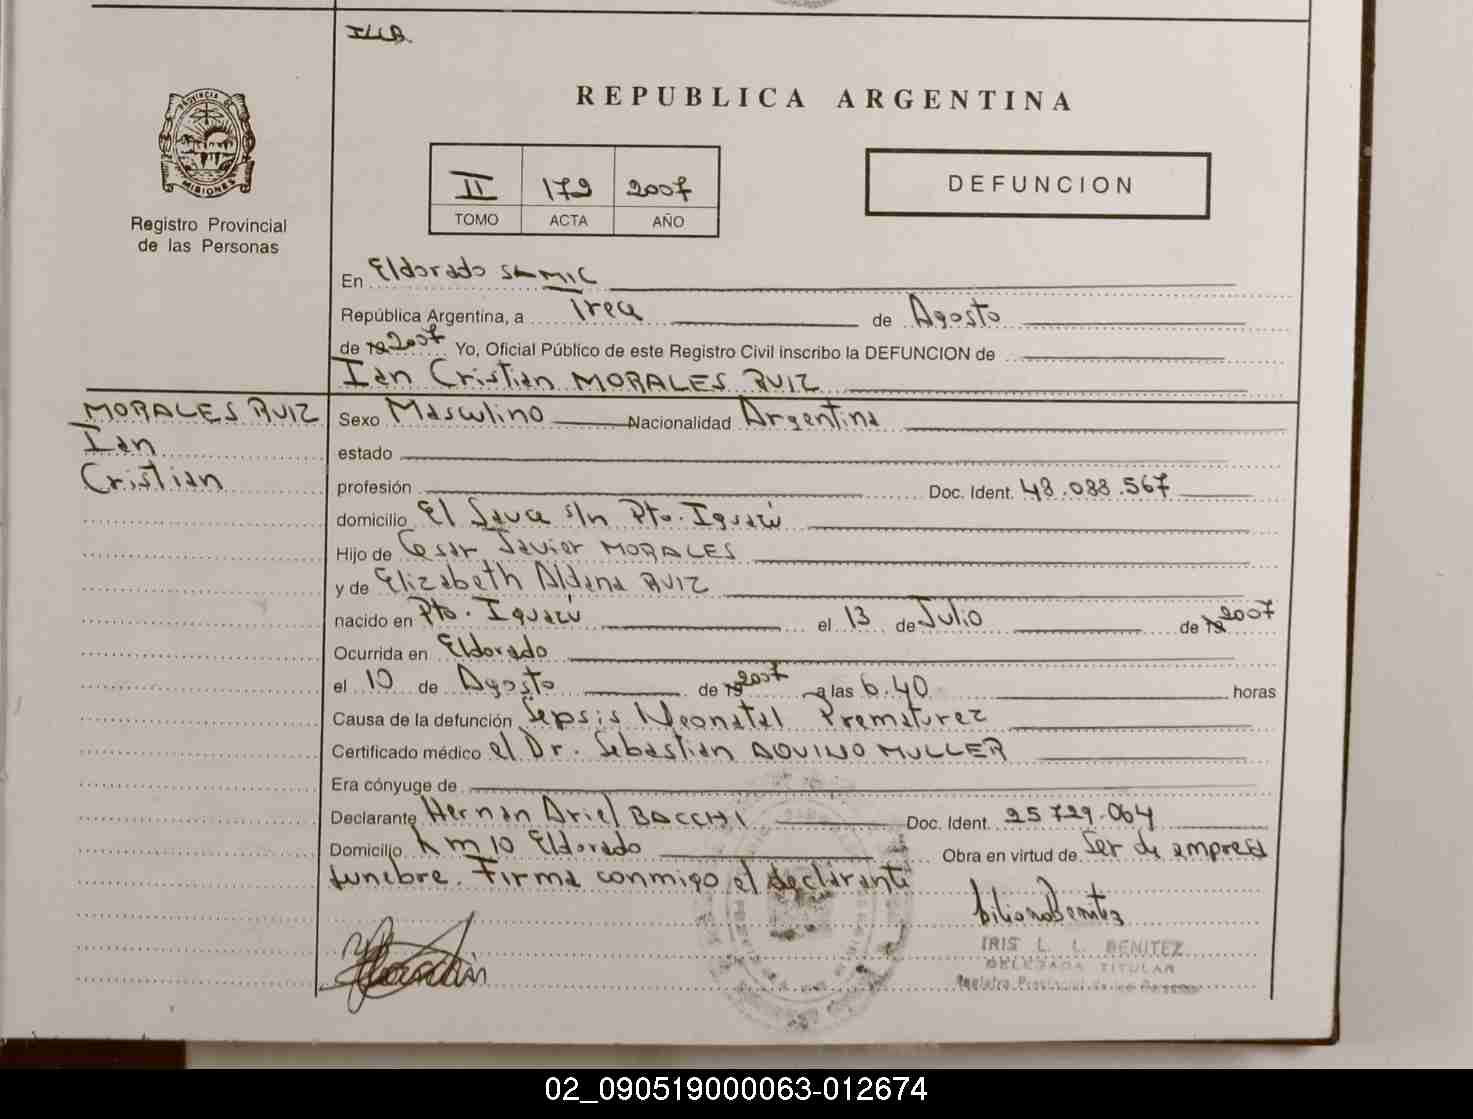 REPUBLICA ARGENTINA
PROVINCIA DE
MISIONES
Registro Provincial
de las Personas
II 172 2007
TOMO ACTA AÑO
DEFUNCION
En Eldorado SAMIC
República Argentina, a Trece de Agosto
de 19 2007 Yo, Oficial Público de este Registro Civil inscribo la DEFUNCION de
Ian Cristian MORALES RUIZ
MORALES RUIZ
Ian
Cristian
Sexo Masculino Nacionalidad Argentina
estado
profesión Doc. Ident. 48.088.567
domicilio El Sauce s/n Pto. Iguazú
Hijo de Cesar Javier MORALES
y de Elizabeth Aldana RUIZ
nacido en Pto. Iguazú el 13 de Julio de 19 2007
Ocurrida en Eldorado
el 10 de Agosto de 19 2007 a las 6.40 horas
Causa de la defunción Sepsis Neonatal Prematurez
Certificado médico el Dr. Sebastian AQUINO MULLER
Era cónyuge de
Declarante Hernan Ariel BACCHI Doc. Ident. 25 729.064
Domicilio Km 10 Eldorado Obra en virtud de Ser de empresa
funebre. Firma conmigo el declarante
IRIS L. L. BENITEZ
DELEGADA TITULAR
Registro Provincial de las Personas
02_090519000063-012674